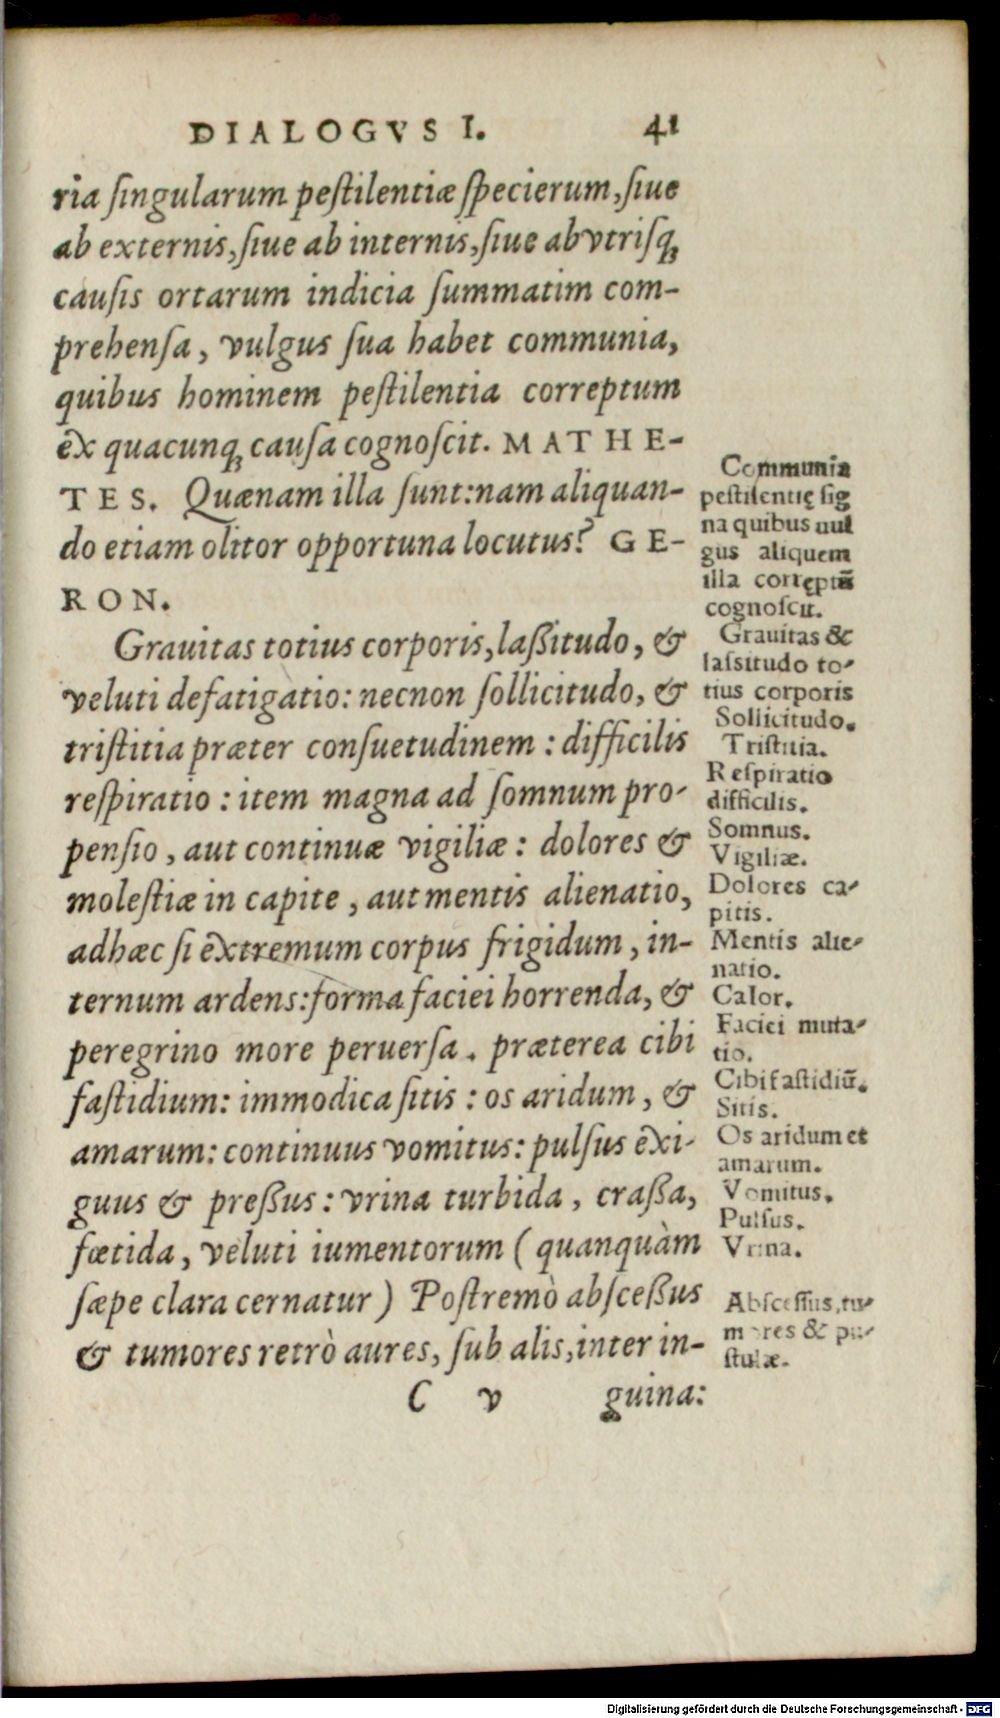 DIALOGVS I. 41
ria ſingularum peſtilentiæ ſpecierum, ſiue
ab externis, ſiue ab internis, ſiue ab vtriſq;
cauſis ortarum indicia ſummatim com-
prehenſa, vulgus ſua habet communia,
quibus hominem peſtilentia correptum
ex quacunq; cauſa cognoſcit. MATHE-
TES. Quænam illa ſunt: nam aliquan-
do etiam olitor opportuna locutus? GE-
RON.
Grauitas totius corporis, laßitudo, &
veluti defatigatio: necnon ſollicitudo, &
triſtitia præter conſuetudinem: difficilis
reſpiratio: item magna ad ſomnum pro-
penſio, aut continuæ vigiliæ: dolores &
moleſtiæ in capite, aut mentis alienatio,
adhæc ſi extremum corpus frigidum, in-
ternum ardens: forma faciei horrenda, &
peregrino more peruerſa. præterea cibi
faſtidium: immodica ſitis: os aridum, &
amarum: continuus vomitus: pulſus exi-
guus & preßus: vrina turbida, craßa,
fœtida, veluti iumentorum (quanquàm
ſæpe clara cernatur) Poſtremò abſceßus
& tumores retrò aures, ſub alis, inter in-
C v guina:
Communia
peſtilentię ſig
na quibus uul
gus aliquem
illa correptū
cognoſcit.
Grauitas &
laſsitudo to-
tius corporis
Sollicitudo.
Triſtitia.
Reſpiratio
difficilis.
Somnus.
Vigiliæ.
Dolores ca-
pitis.
Mentis alie-
natio.
Calor.
Faciei muta-
tio.
Cibi faſtidiū.
Sitis.
Os aridum et
amarum.
Vomitus.
Pulſus.
Vrina.
Abſceſſus, tu-
mores & pu-
ſtulæ.
Digitalisierung gefördert durch die Deutsche Forschungsgemeinschaft - DFG